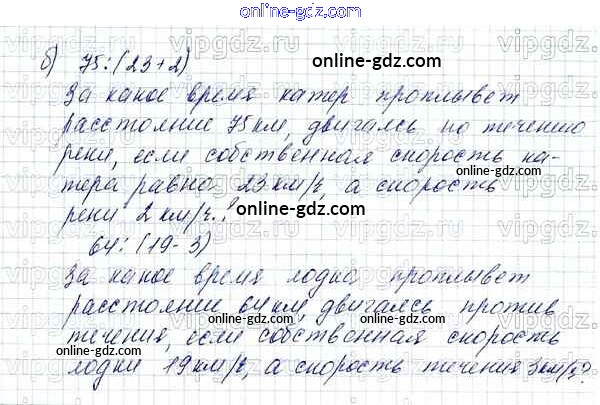 online-gdz.com
б) 75:(23+2)
online-gdz.com
За какое время катер проплывет
расстояние 75 км, двигаясь по течению
реки, если собственная скорость ка-
тера равно 23 км/ч, а скорость
реки 2 км/ч.?
online-gdz.com
64:(19-3)
За какое время лодка проплывет
расстоянии 64 км, двигаясь против
online-gdz.com
течения, если собственная скорость
online-gdz.com
online-gdz.com
лодки 19 км/ч, а скорость течения 3 км/ч?